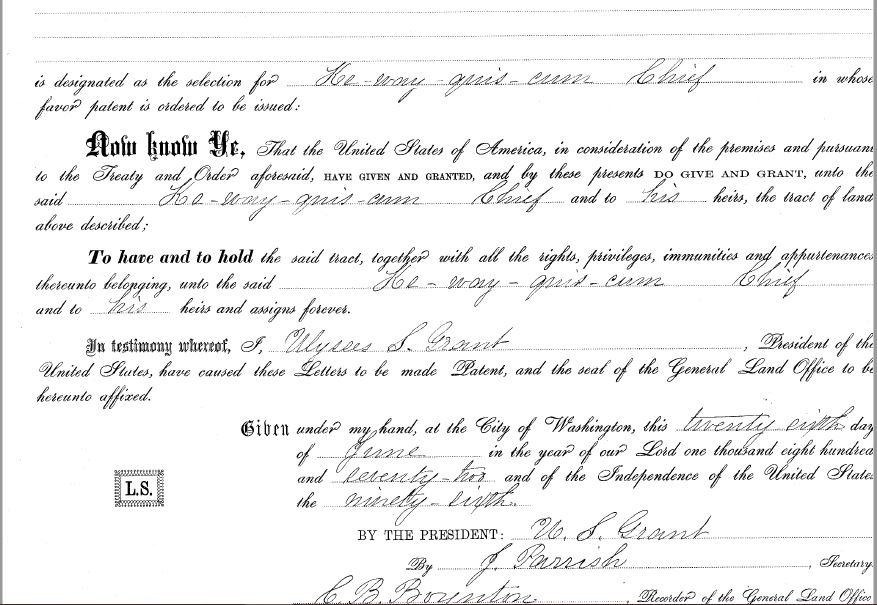 is designated as the selection for Ke-way-quis-cum Chief in whose
favor patent is ordered to be issued:
Now know Ye, That the United States of America, in consideration of the premises and pursuant
to the Treaty and Order aforesaid, HAVE GIVEN AND GRANTED, and by these presents DO GIVE AND GRANT, unto the
said Ke-way-quis-cum Chief and to his heirs, the tract of land
above described;
To have and to hold the said tract, together with all the rights, privileges, immunities and appurtenances
thereunto belonging, unto the said Ke-way-quis-cum Chief
and to his heirs and assigns forever.
In testimony whereof, I, Ulysses S. Grant, President of the
United States, have caused these Letters to be made Patent, and the seal of the General Land Office to be
hereunto affixed.
Given under my hand, at the City of Washington, this twenty sixth day
of June in the year of our Lord one thousand eight hundred
and seventy-two and of the Independence of the United States
the ninety-sixth.
L.S.
BY THE PRESIDENT: U. S. Grant
By J. Parrish, Secretary.
C. B. Boynton, Recorder of the General Land Office